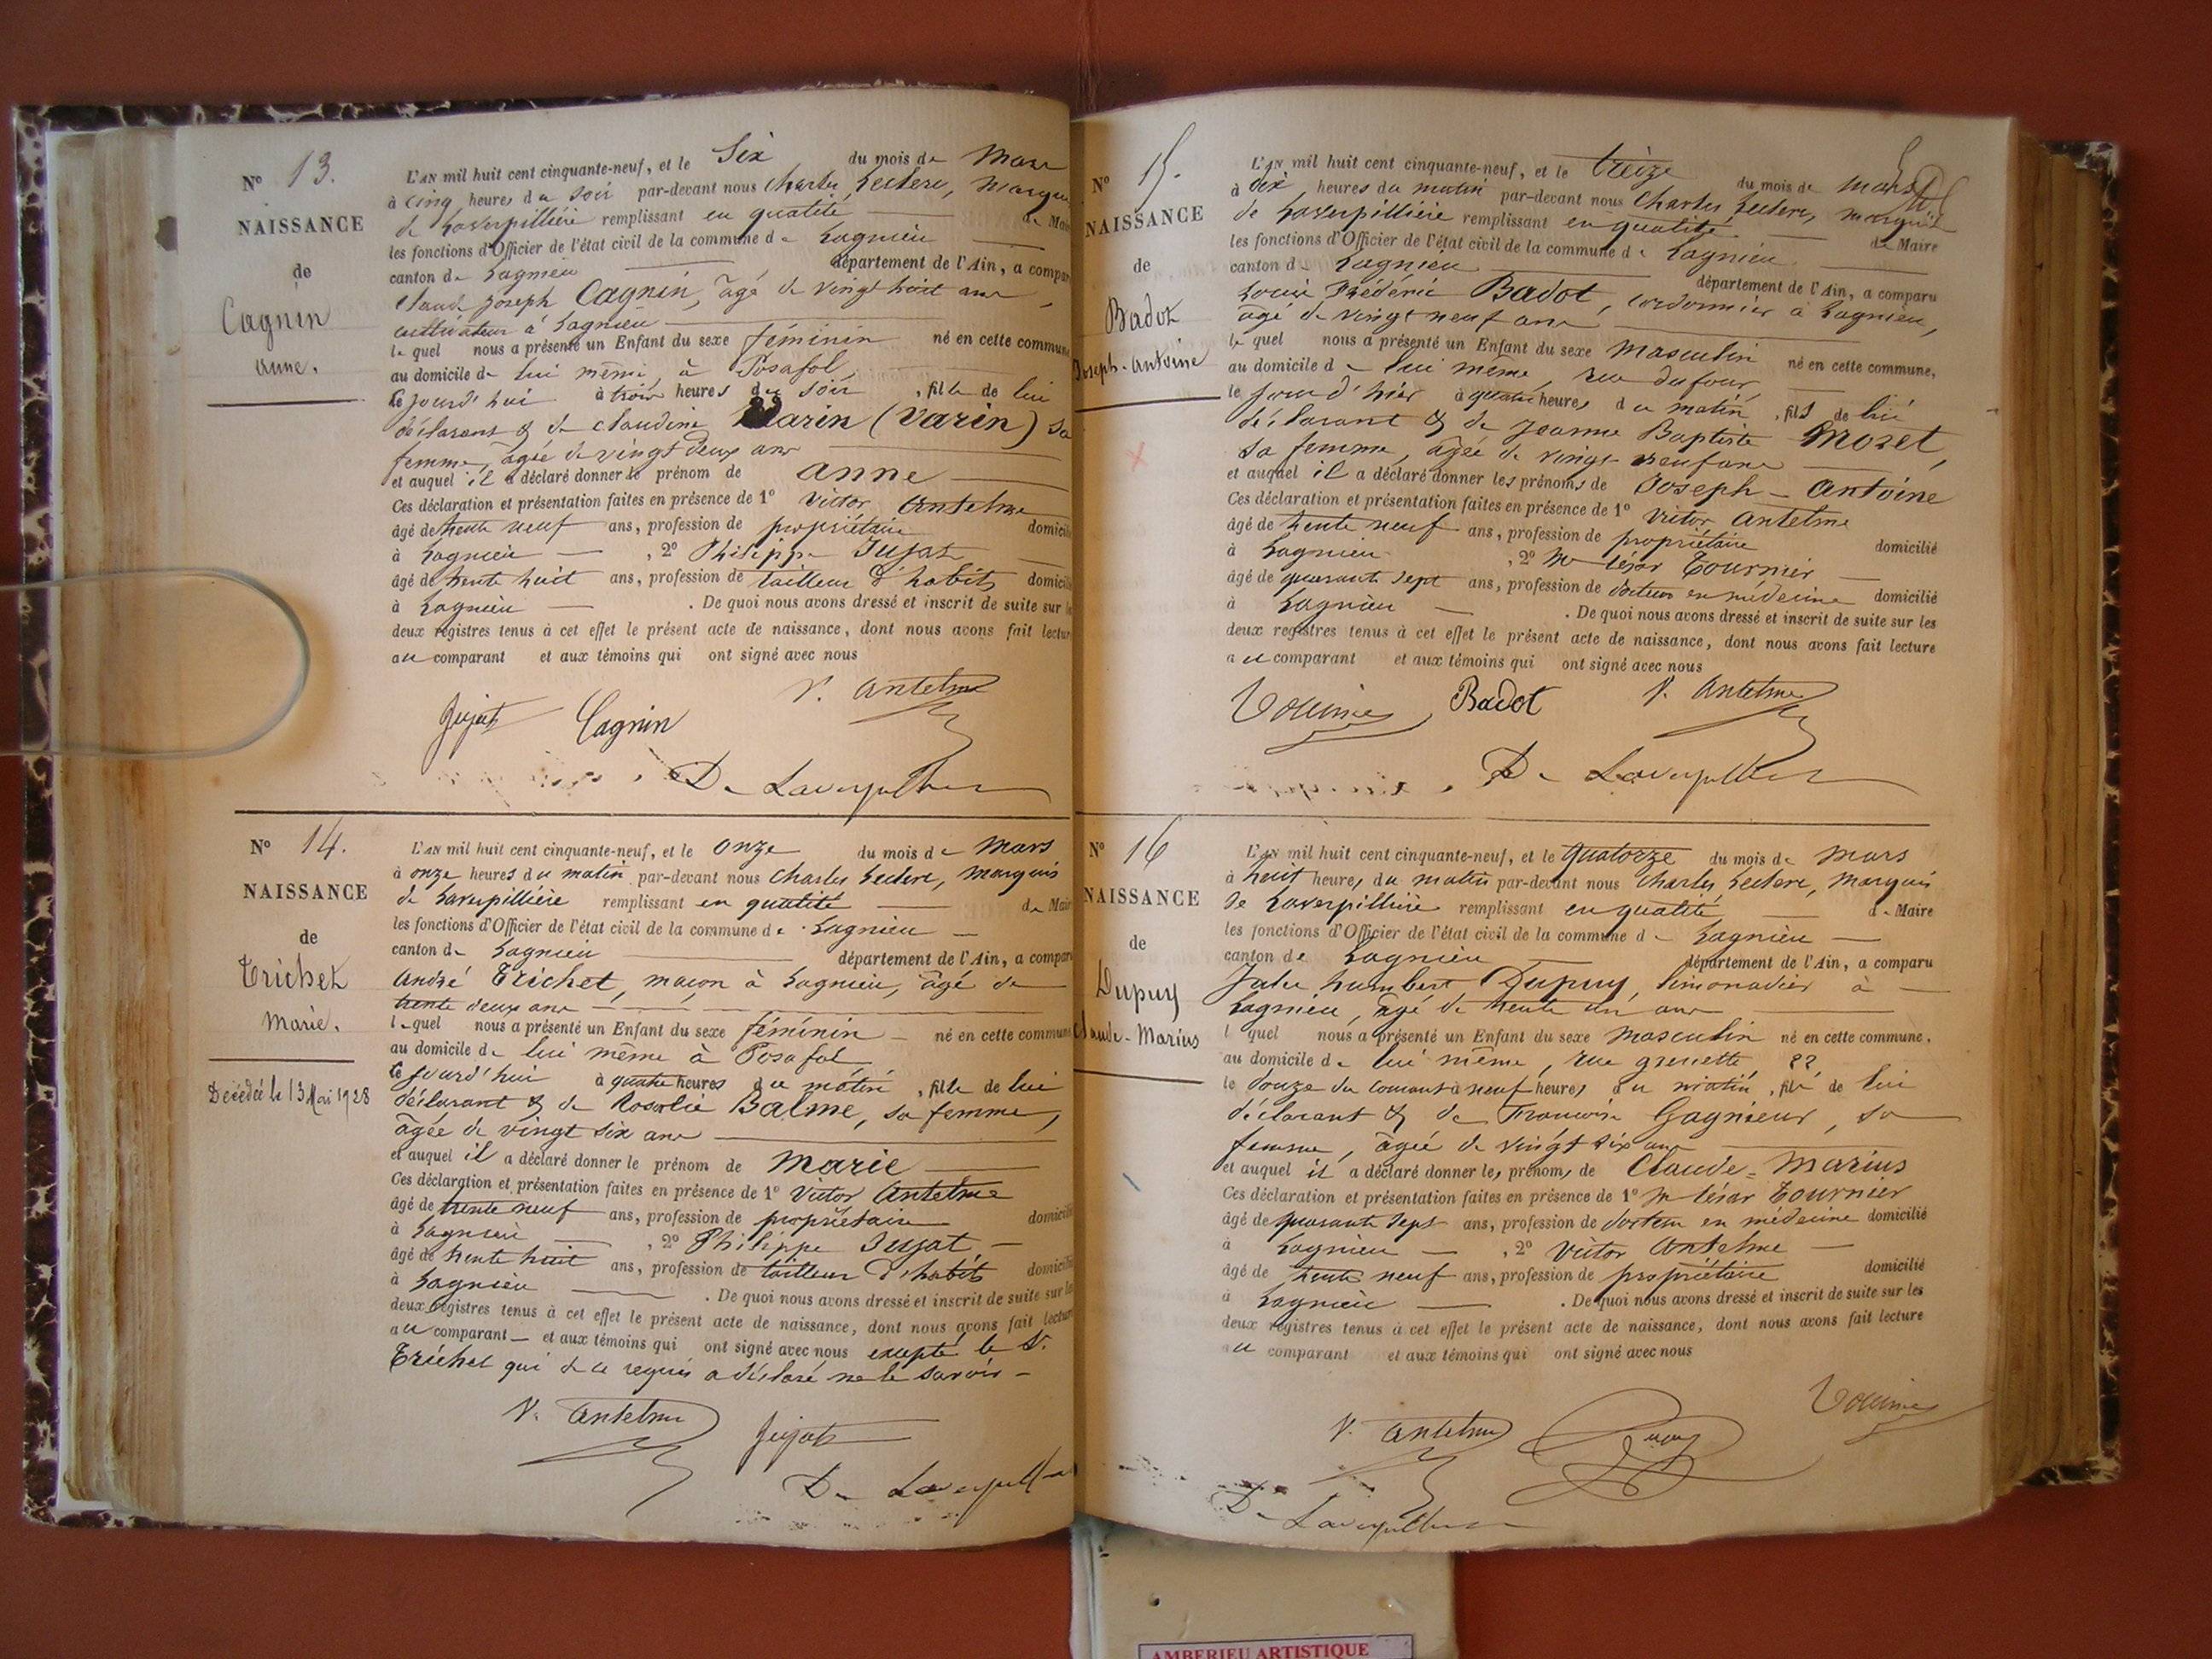 N° 13.
NAISSANCE
de
Cagnin
anne.
L'AN mil huit cent cinquante-neuf, et le Six du mois de Mars
à cinq heures du soir par-devant nous Charles Leclerc, Marquis
de Laverpillière remplissant en qualité de Maire
les fonctions d'Officier de l'état civil de la commune de Lagnieu
canton de Lagnieu département de l'Ain, a comparu
Claude Joseph Cagnin, âgé de vingt huit ans,
cultivateur à Lagnieu
lequel nous a présenté un Enfant du sexe féminin né en cette commune
au domicile de lui même, à Posafol,
ce jourd'hui à trois heures du soir, fille de lui
déclarant & de Claudine Varin (Varin) sa
femme, âgée de vingt deux ans
et auquel il a déclaré donner le prénom de anne
Ces déclaration et présentation faites en présence de 1° Victor Antelme
âgé de trente neuf ans, profession de propriétaire domicilié
à Lagnieu, 2° Philippe Jujat
âgé de trente huit ans, profession de tailleur d'habits domicilié
à Lagnieu. De quoi nous avons dressé et inscrit de suite sur les
deux registres tenus à cet effet le présent acte de naissance, dont nous avons fait lecture
au comparant et aux témoins qui ont signé avec nous
V. Antelme
Jujat Cagnin
De Laverpillière
N° 14.
NAISSANCE
de
Trichet
Marie.
Décédée le 13 Mai 1928
L'AN mil huit cent cinquante-neuf, et le onze du mois de Mars
à onze heures du matin par-devant nous Charles Leclerc, Marquis
de Laverpillière remplissant en qualité de Maire
les fonctions d'Officier de l'état civil de la commune de Lagnieu
canton de Lagnieu département de l'Ain, a comparu
André Trichet, maçon à Lagnieu, âgé de
trente deux ans
lequel nous a présenté un Enfant du sexe féminin né en cette commune
au domicile de lui même à Posafol
ce jourd'hui à quatre heures du matin, fille de lui
déclarant & de Rosalie Balme, sa femme,
âgée de vingt six ans
et auquel il a déclaré donner le prénom de Marie
Ces déclaration et présentation faites en présence de 1° Victor Antelme
âgé de trente neuf ans, profession de propriétaire domicilié
à Lagnieu, 2° Philippe Jujat,
âgé de trente huit ans, profession de tailleur d'habits domicilié
à Lagnieu. De quoi nous avons dressé et inscrit de suite sur les
deux registres tenus à cet effet le présent acte de naissance, dont nous avons fait lecture
au comparant et aux témoins qui ont signé avec nous excepté le S.
Trichet qui de ce requis a déclaré ne le savoir
V. Antelme Jujat
De Laverpillière
N° 15.
NAISSANCE
de
Badot
Joseph-Antoine
L'AN mil huit cent cinquante-neuf, et le treize du mois de Mars
à dix heures du matin par-devant nous Charles Leclerc, Marquis
de Laverpillière remplissant en qualité de Maire
les fonctions d'Officier de l'état civil de la commune de Lagnieu
canton de Lagnieu département de l'Ain, a comparu
Louis Frédéric Badot, cordonnier à Lagnieu,
âgé de vingt neuf ans
lequel nous a présenté un Enfant du sexe Masculin né en cette commune,
au domicile de lui même, rue du four
le jour d'hier à quatre heures du matin, fils de lui
déclarant & de Jeanne Baptiste Mozet,
sa femme, âgée de vingt neuf ans
et auquel il a déclaré donner les prénoms de Joseph-Antoine
Ces déclaration et présentation faites en présence de 1° Victor Antelme
âgé de trente neuf ans, profession de propriétaire domicilié
à Lagnieu, 2° Mr César Tournier
âgé de quarante sept ans, profession de docteur en médecine domicilié
à Lagnieu. De quoi nous avons dressé et inscrit de suite sur les
deux registres tenus à cet effet le présent acte de naissance, dont nous avons fait lecture
au comparant et aux témoins qui ont signé avec nous
Tournier Badot V. Antelme
De Laverpillière
N° 16
NAISSANCE
de
Dupuy
Claude-Marius
L'AN mil huit cent cinquante-neuf, et le quatorze du mois de Mars
à huit heures du matin par-devant nous Charles Leclerc, Marquis
de Laverpillière remplissant en qualité de Maire
les fonctions d'Officier de l'état civil de la commune de Lagnieu
canton de Lagnieu département de l'Ain, a comparu
Jules humbert Dupuy, limonadier à
Lagnieu, âgé de trente un ans
lequel nous a présenté un Enfant du sexe Masculin né en cette commune,
au domicile de lui même, rue grenette
le douze du courant à neuf heures du matin, fils de lui
déclarant & de Françoise Gagnieur, sa
femme, âgée de vingt six ans
et auquel il a déclaré donner les prénoms de Claude=Marius
Ces déclaration et présentation faites en présence de 1° Mr César Tournier
âgé de quarante sept ans, profession de docteur en médecine domicilié
à Lagnieu, 2° Victor Antelme
âgé de trente neuf ans, profession de propriétaire domicilié
à Lagnieu. De quoi nous avons dressé et inscrit de suite sur les
deux registres tenus à cet effet le présent acte de naissance, dont nous avons fait lecture
au comparant et aux témoins qui ont signé avec nous
Tournier
V. Antelme Dupuy
De Laverpillière
AMBERIEU ARTISTIQUE